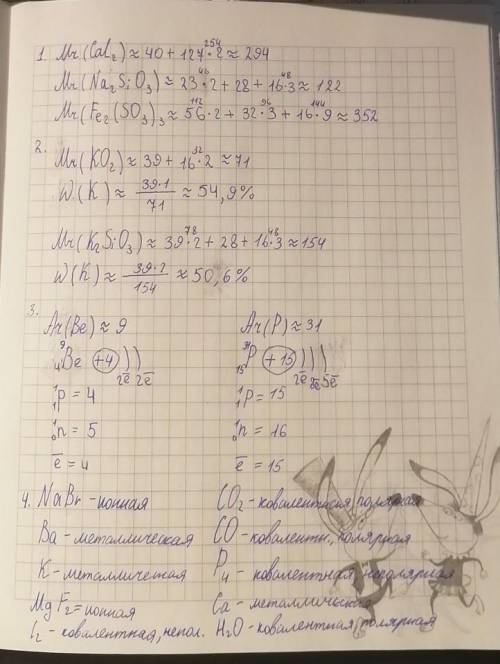 1. Mr(CaI₂) ≈ 40 + 127·2 ²⁵⁴ ≈ 294
Mr(Na₂SiO₃) ≈ 23·2 ⁴⁶ + 28 + 16·3 ⁴⁸ ≈ 122
Mr(Fe₂(SO₃)₃ ≈ 56·2 ¹¹² + 32·3 ⁹⁶ + 16·9 ¹⁴⁴ ≈ 352
2.
Mr(KO₂) ≈ 39 + 16·2 ³² ≈ 71
W(K) ≈ 39·1/71 ≈ 54,9%
Mr(K₂SiO₃) ≈ 39·2 ⁷⁸ + 28 + 16·3 ⁴⁸ ≈ 154
W(K) ≈ 39·2/154 ≈ 50,6%
3.
Ar(Be) ≈ 9
⁹₄Be +4 ) )
2ē 2ē
¹₁p = 4
¹₀n = 5
ē = 4
Ar(P) ≈ 31
³¹₁₅P +15 ) ) )
2ē 8ē 5ē
¹₁p = 15
¹₀n = 16
ē = 15
4. NaBr - ионная
Ba - металлическая
K - металлическая
MgF₂ = ионная
I₂ - ковалентная, непол.
CO₂ - ковалентная, полярная
CO - ковалентн., полярная
P₄ - ковалентная, неполярная
Ca - металлическая
H₂O - ковалентная, полярная